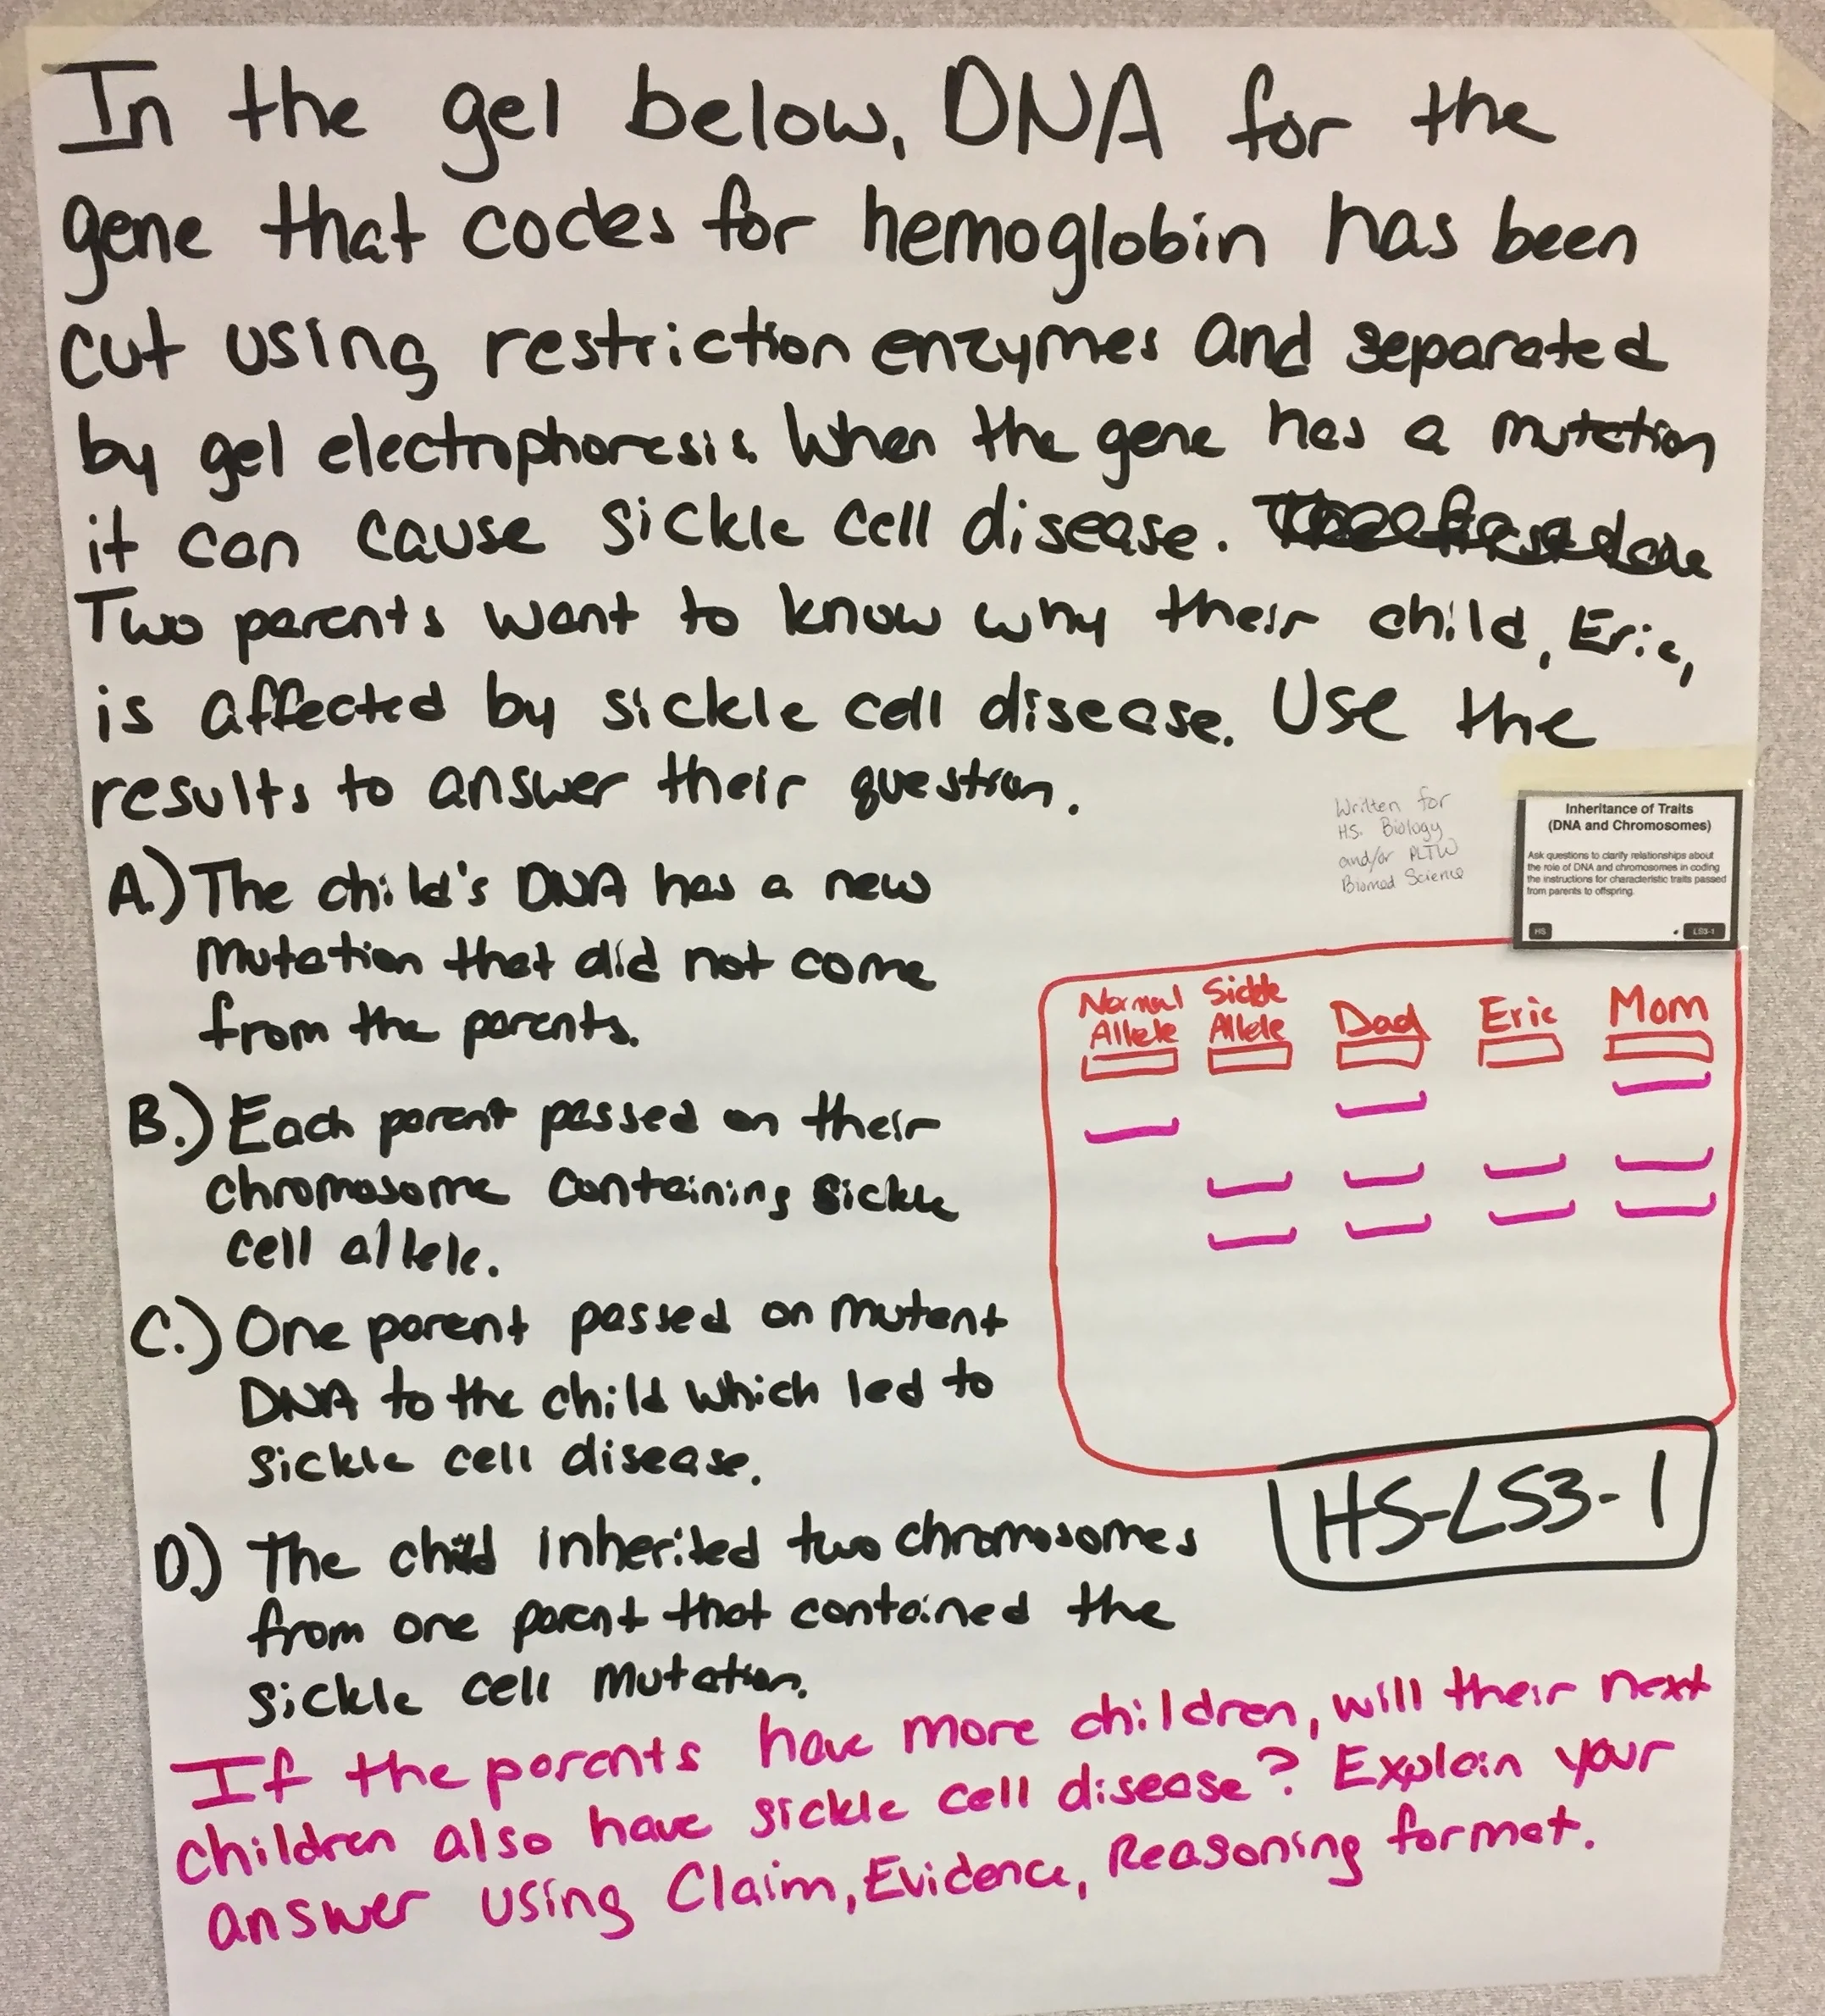 In the gel below, DNA for the
gene that codes for hemoglobin has been
cut using restriction enzymes and separated
by gel electrophoresis. When the gene has a mutation
it can cause sickle cell disease.
Two parents want to know why their child, Eric,
is affected by sickle cell disease. Use the
results to answer their question.
Written for
H.S. Biology
and/or PLTW
Biomed Science
Inheritance of Traits
(DNA and Chromosomes)
Ask questions to clarify relationships about
the role of DNA and chromosomes in coding
the instructions for characteristic traits passed
from parents to offspring.
HS
LS3-1
A.) The child's DNA has a new
mutation that did not come
from the parents.
B.) Each parent passed on their
chromosome containing sickle
cell allele.
C.) One parent passed on mutant
DNA to the child which led to
sickle cell disease.
D.) The child inherited two chromosomes
from one parent that contained the
sickle cell mutation.
Normal
Allele
Sickle
Allele
Dad
Eric
Mom
HS-LS3-1
If the parents have more children, will their next
children also have sickle cell disease? Explain your
answer using Claim, Evidence, Reasoning format.